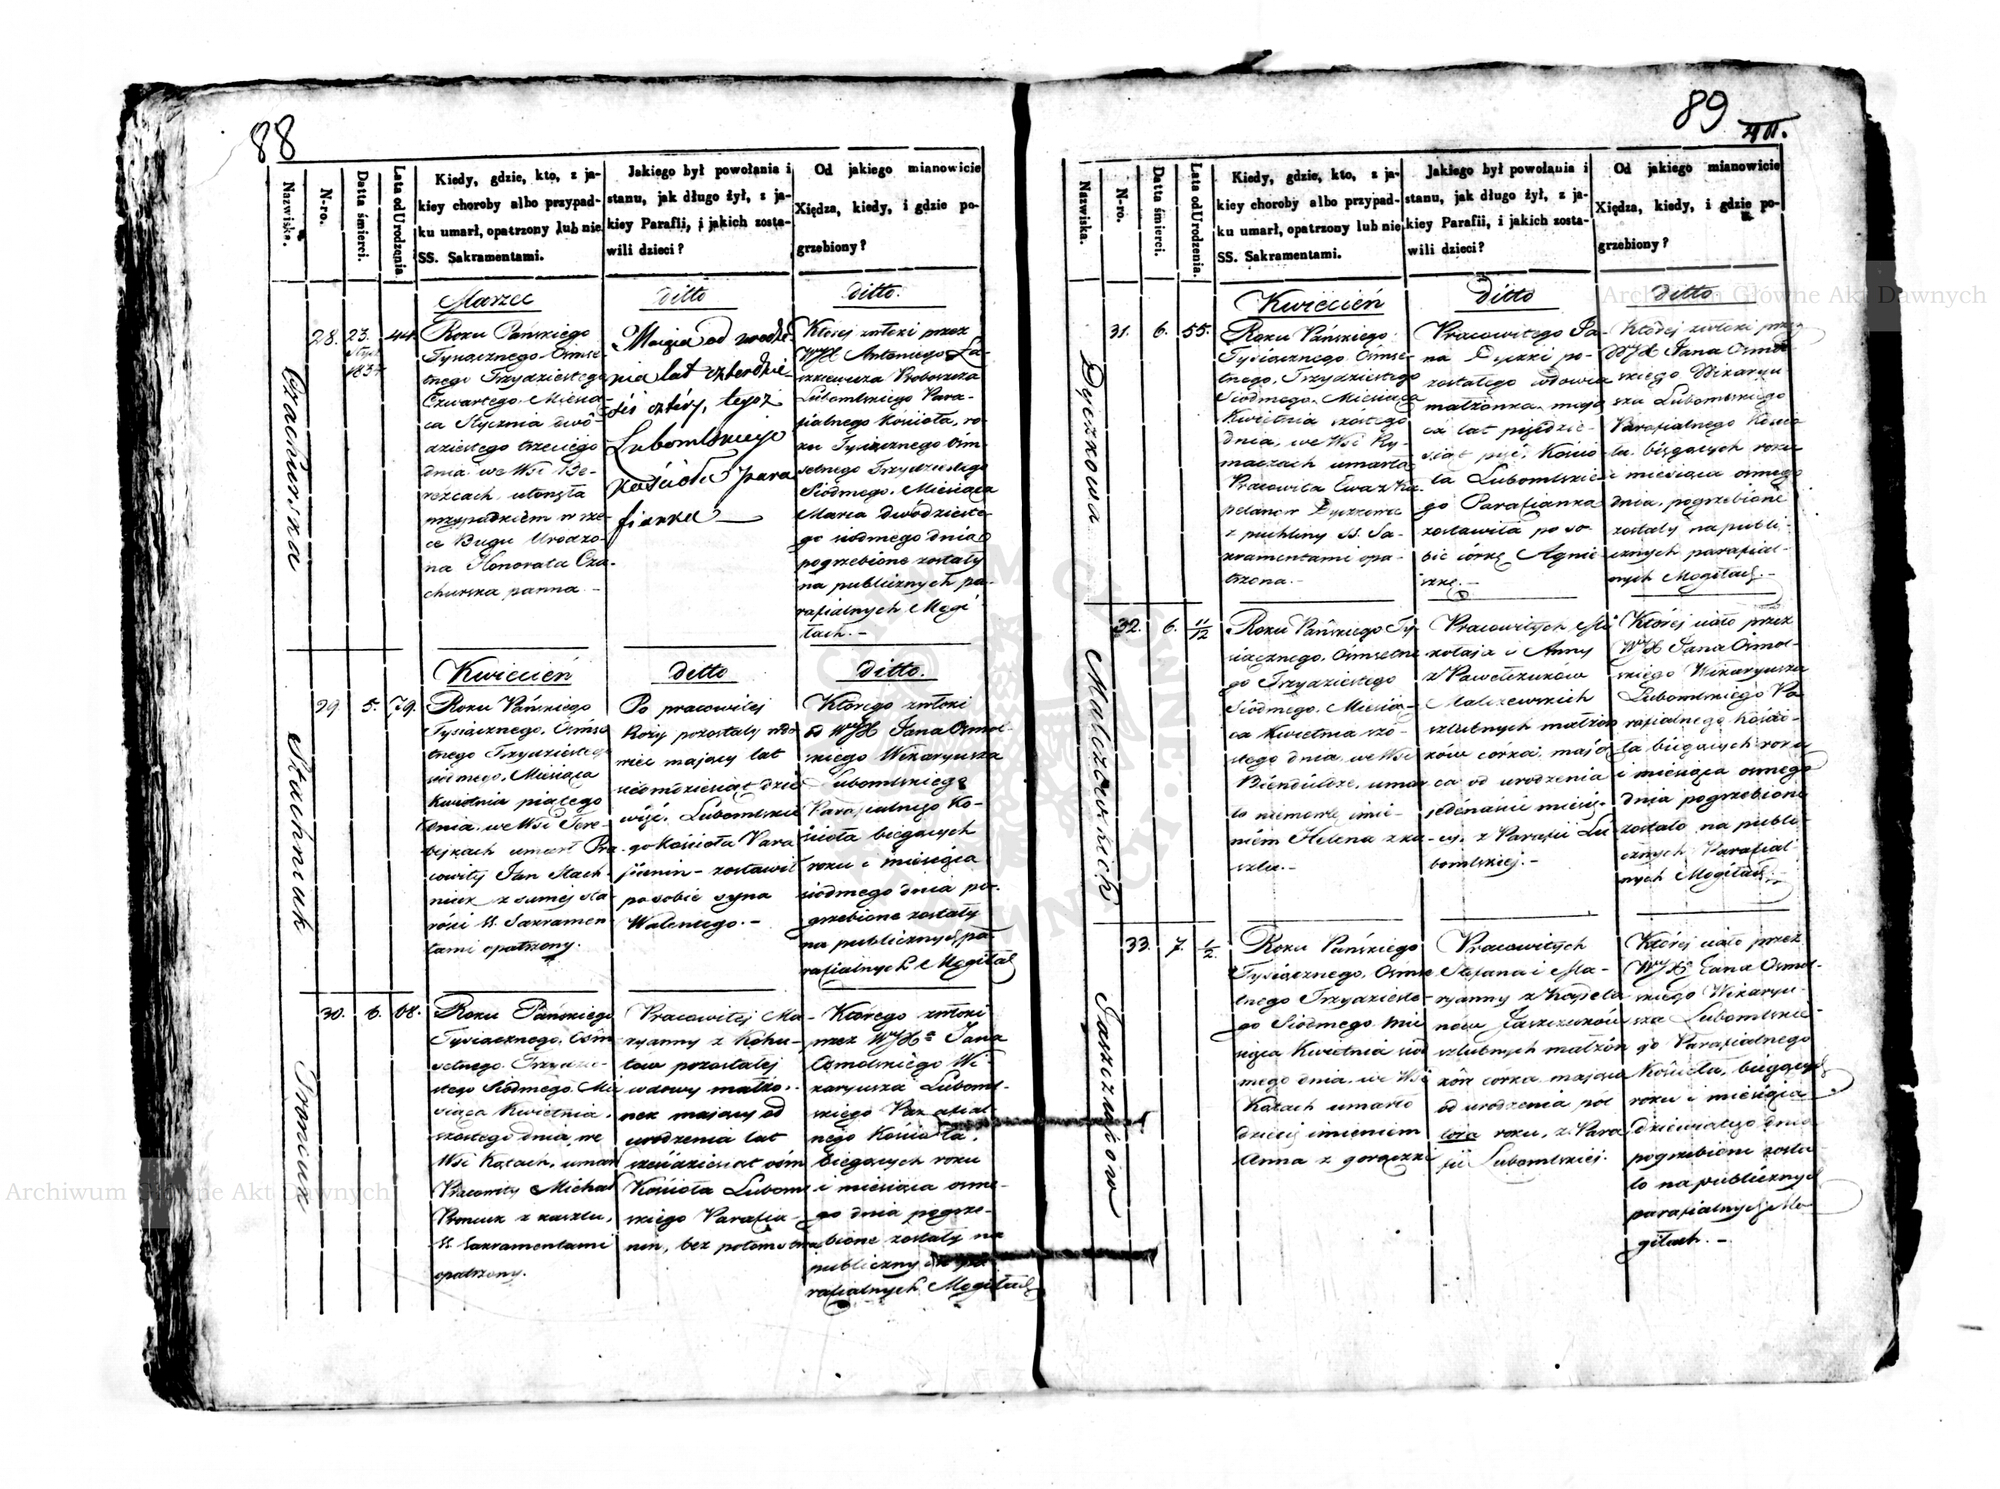 88
Nazwiska.
N-ro.
Datta śmierci.
Lata od Urodzenia
Kiedy, gdzie, kto, z ja-
kiey choroby albo przypad-
ku umarł, opatrzony lub nie
SS. Sakramentami.
Jakiego był powołania i
stanu, jak długo żył, z ja-
kiey Parafii, i jakich zosta-
wili dzieci?
Od jakiego mianowicie
Xiędza, kiedy, i gdzie po-
grzebiony?
Marzec
ditto
ditto.
Czachurska
28.
23.
1837
44.
Roku Pańskiego
Tysiącznego Ośmse-
tnego Trzydziestego
Czwartego Miesią-
ca Stycznia dwó-
dziestego trzeciego
dnia we Wsi Be-
rezcach utonęła
przypadkiem w rze-
ce Bugu Urodzo-
na Honorata Cza-
churska panna. –
Mająca od urodze-
nia lat czterdzie-
ści cztéry, tegoż
Lubomlskiego
Kościoła para
fianka —
Której zwłoki przez
WJX Antoniego La-
szkiewicza Proboszcza
Lubomlskiego Para-
fialnego Kościoła, ro-
ku Tysiącznego Ośm-
setnego Trzydziestego
Siódmego, Miesiąca
Marca dwódzieste-
go siódmego dnia
pogrzebione zostały
na publicznych pa-
rafialnych Mogi-
łach. –
Kwiecień
ditto
ditto.
Stachniuk
29
5.
79.
Roku Pańskiego
Tysiącznego, Ośmse
tnego Trzydziestego
siódmego, Miesiąca
Kwietnia piątego
dnia, we Wsi Tere-
bejkach umarł Pra-
cowity Jan Stach-
niuk z samej sta-
rości SS. Sakramen
tami opatrzony.
Po pracowitej
Roży pozostały wdo
wiec mający lat
siedmdziesiąt dzie
więć, Lubomlskie
go Kościoła Para
fianin – zostawił
po sobie syna
Walentego. –
Którego zwłoki
od WJX Jana Osmol-
skiego Wikaryusza
Lubomlskiego
Parafialnego Ko-
ścioła bieżących
roku i miesiąca
siódmego dnia po-
grzebione zostały
na publicznych pa-
rafialnych Mogiłach
Proniuk
30.
6.
68.
Roku Pańskiego
Tysiącznego, Ośm
setnego, Trzydzie-
stego Siódmego. Mie
siąca Kwietnia,
szóstego dnia, we
Wsi Kątach, umarł
Pracowity Michał
Proniuk z kaszlu,
SS Sakramentami
opatrzony.
Pracowitej Ma-
ryanny z Kohu-
tów pozostałej
wdowy małżo-
nek mający od
urodzenia lat
sześćdziesiąt ośm
Kościoła Luboml
skiego Parafia-
nin, bez potomstwa
Którego zwłoki
przez WJXa Jana
Osmolskiego Wi-
karyusza Luboml-
skiego Parafial-
nego Kościoła,
bieżących roku
i miesiąca ósme-
go dnia pogrze-
bione zostały na
publicznych pa-
rafialnych Mogiłach
89
Nazwiska.
N-ro.
Datta śmierci.
Lata od Urodzenia.
Kiedy, gdzie, kto, z ja-
kiey choroby albo przypad-
ku umarł, opatrzony lub nie
SS. Sakramentami.
Jakiego był powołania i
stanu, jak długo żył, z ja-
kiey Parafii, i jakich zosta-
wili dzieci?
Od jakiego mianowicie
Xiędza, kiedy, i gdzie po-
grzebiony?
Kwiecień
ditto
ditto
Dyczkowa
31.
6.
55.
Roku Pańskiego
Tysiącznego Ośmse-
tnego, Trzydziestego
Siódmego, Miesiąca
Kwietnia szóstego
dnia, we Wsi Ry-
maczach umarła
Pracowita Ewa z Ka-
pelanów Dyczkowa
z puchliny SS. Sa-
kramentami opa-
trzona. –
Pracowitego Ja-
na Dyczki po-
zostałego wdowca
małżonka, mają
ca lat pięćdzie-
siąt pięć, Kościo
ła Lubomlskie
go Parafianka
zostawiła po so-
bie córkę Agnie
szkę. –
Której zwłoki przez
WJX Jana Osmol-
skiego Wikaryu
sza Lubomlskiego
Parafialnego Kości
ła bieżących roku
i miesiąca ósmego
dnia, pogrzebione
zostały na publi-
cznych parafial-
nych Mogiłach. –
Malczewskich
32.
6.
11/12
Roku Pańskiego Ty-
siącznego, Ośmsetne
go Trzydziestego
Siódmego, Miesią-
ca Kwietnia szó-
stego dnia, we Wsi
Bindudze, umar
ło niemowlę imie-
niem Helena z ka-
szlu. –
Pracowitych Mi
kołaja i Anny
z Pawelczuków
Malczewskich
szlubnych małżon
ków córka mają
ca od urodzenia
jedenaście miesię-
cy, z Parafii Lu
bomlskiej. –
Której ciało przez
WJX Jana Osmol-
skiego Wikaryusza
Lubomlskiego Pa
rafialnego Kościo-
ła bieżących roku
i miesiąca ósmego
dnia pogrzebione
zostało na publi-
cznych Parafial-
nych Mogiłach. –
Jaszczuków
33.
7.
1/2.
Roku Pańskiego
Tysiącznego, Ośmse
tnego Trzydzieste-
go Siódmego Mie
siąca Kwietnia siód
mego dnia, we Wsi
Kątach umarło
dziecię imieniem
Anna z gorączki
Pracowitych
Stefana i Ma-
ryanny z Kapela
nów Jaszczuków
szlubnych małżon
ków córka mająca
od urodzenia pół
tora roku, z Para
fii Lubomlskiej.
Której ciało przez
WJX Jana Osmol-
skiego Wikaryu-
sza Lubomlskie-
go Parafialnego
Kościoła, bieżących
roku i miesiąca
dziewiątego dnia
pogrzebione zosta
ło na publicznych
parafialnych Mo-
giłach. –
Archiwum Główne Akt Dawnych
Archiwum Główne Akt Dawnych